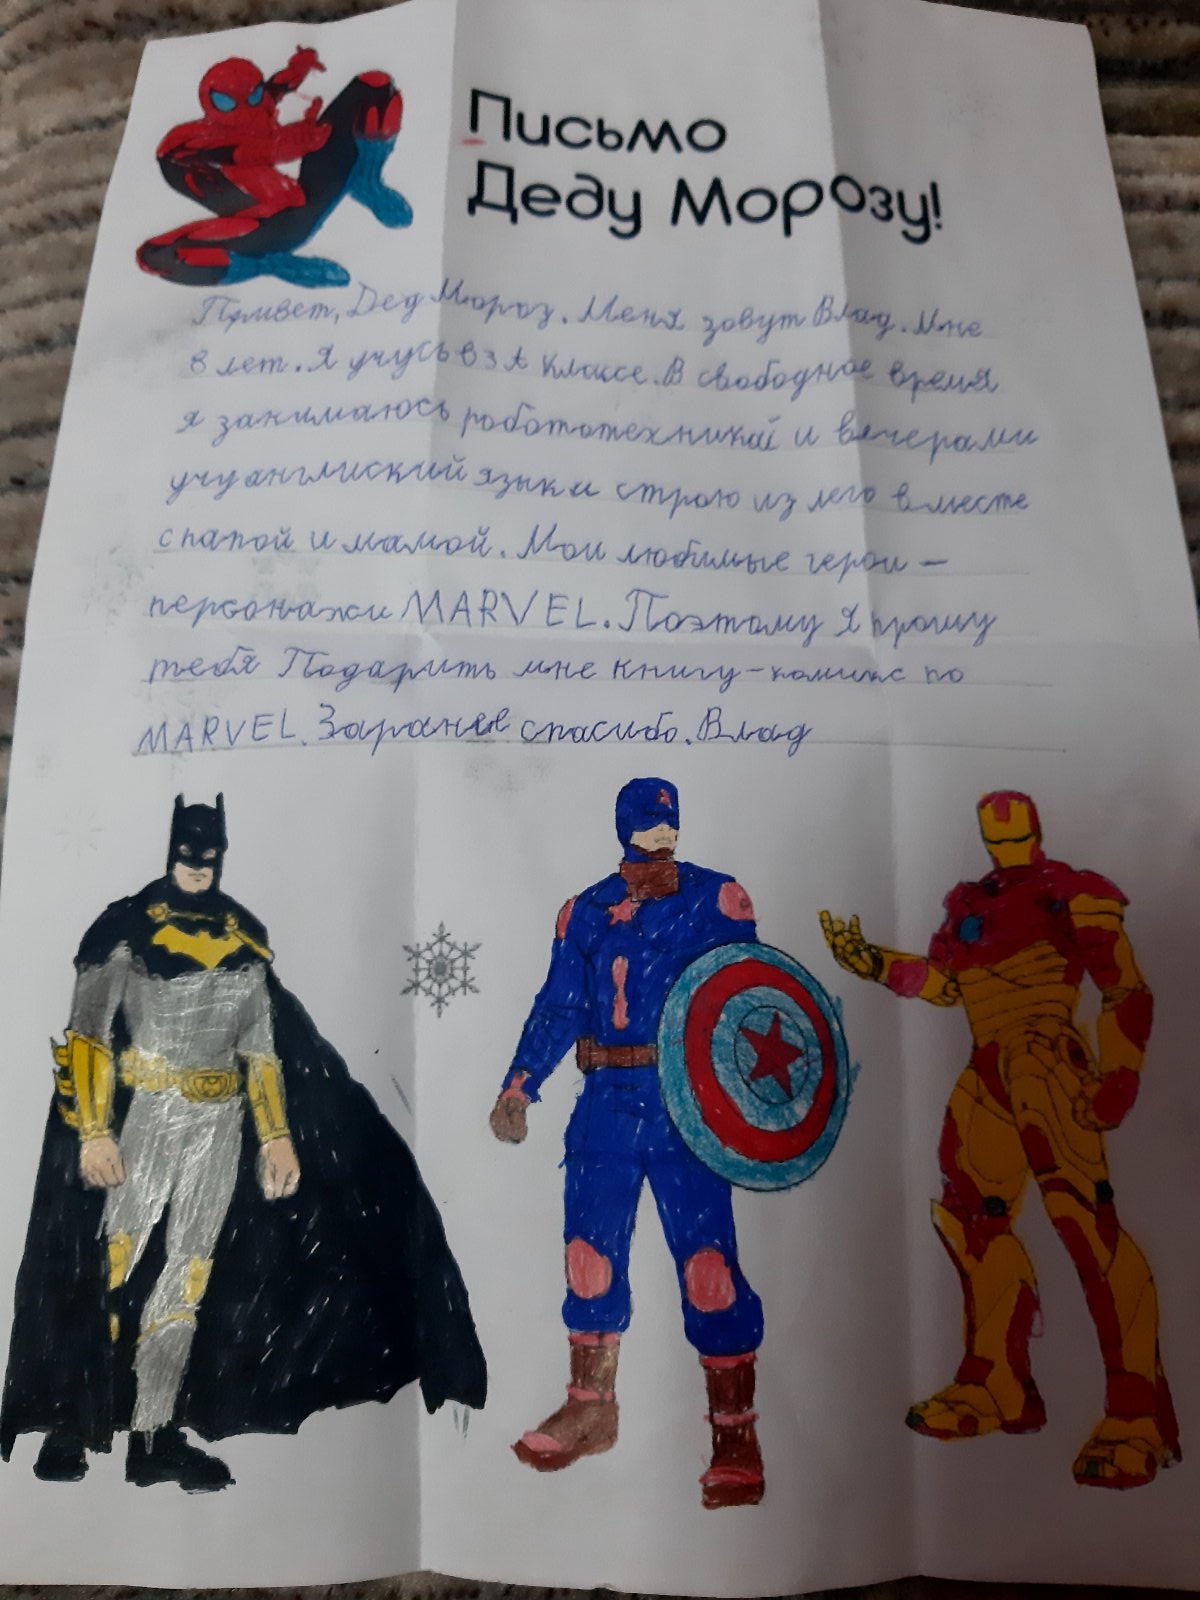 Письмо
Деду Морозу!
Привет, Дед Мороз. Меня зовут Влад. Мне
8 лет. Я учусь в 3 А классе. В свободное время
я занимаюсь робототехникой и вечерами
учу англиский язык и строю из лего вместе
с папой и мамой. Мои любимые герои –
персонажи MARVEL. Поэтому я прошу
тебя Подарить мне книгу-комикс по
MARVEL. Заранее спасибо. Влад